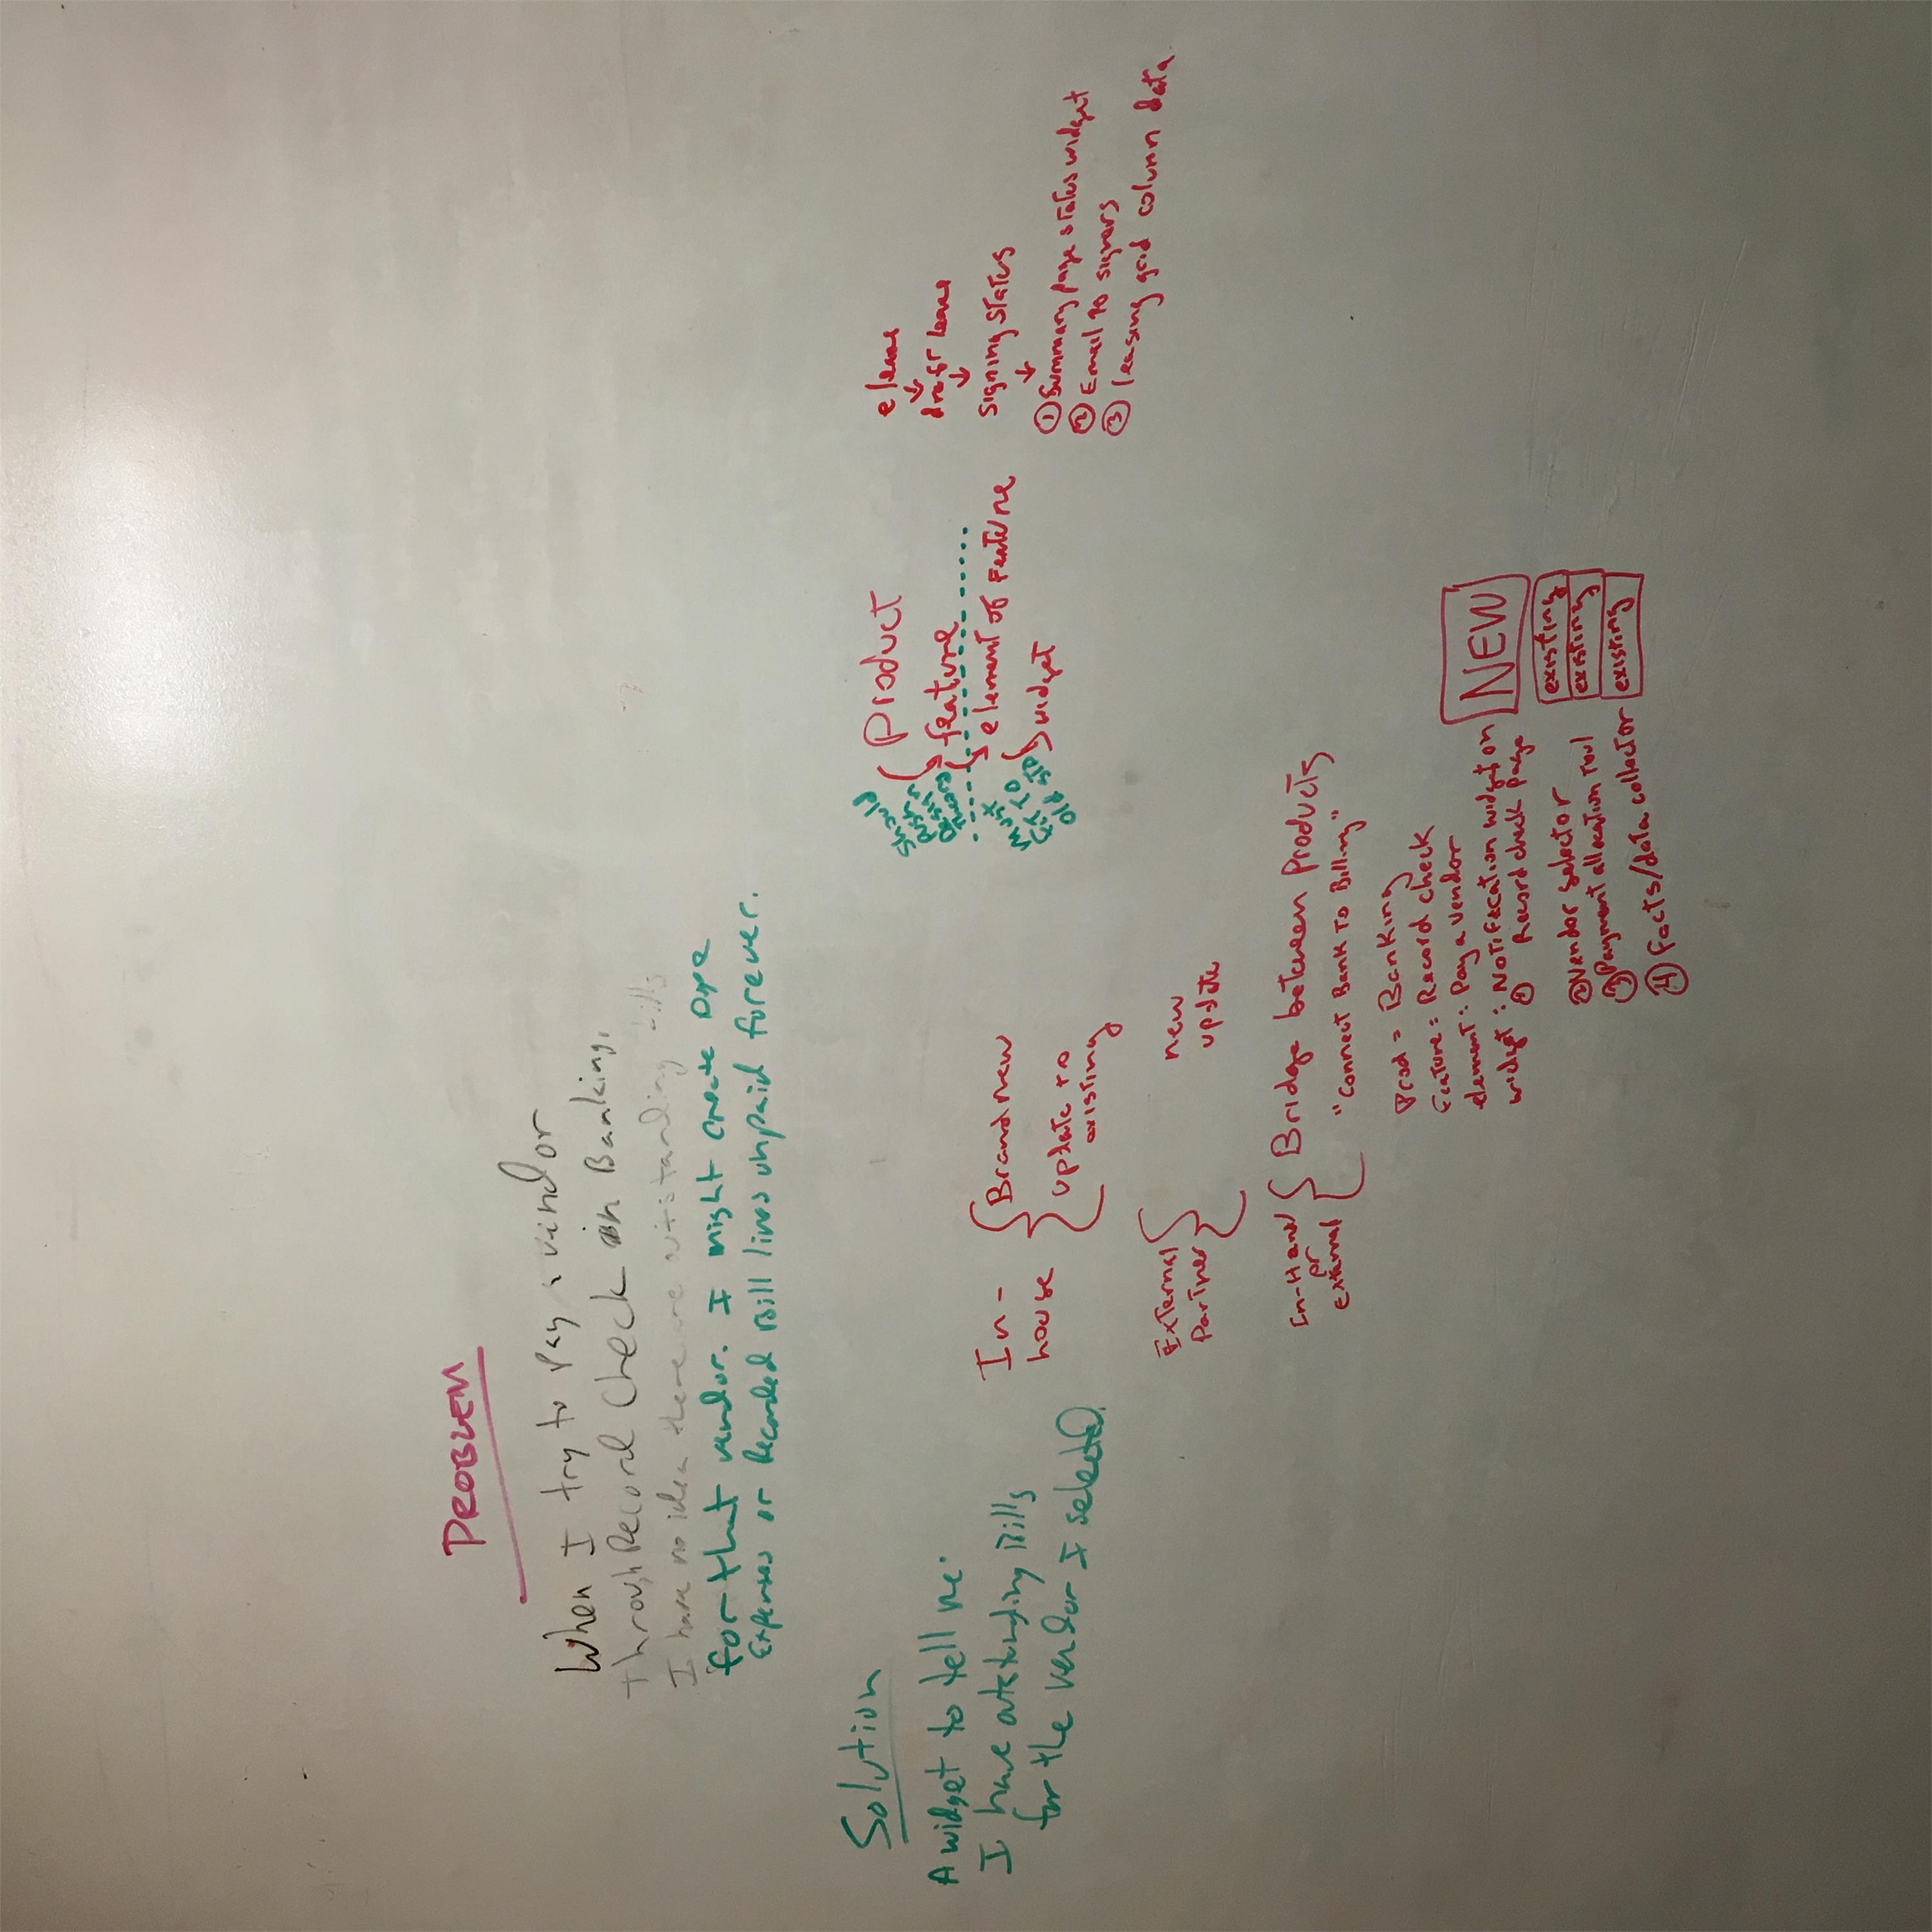 PROBLEM
When I try to pay a vendor
through Record Check in Banking,
I have no idea there are outstanding bills
for that vendor. I might create Dupe
Expenses or Recorded Bill lines unpaid forever.
Solution
A widget to tell me:
I have outstanding Bills
for the vendor I selected.
In-
house
Brand new
update to
existing
External
Partner
new
update
In-House
or
external
Bridge between Products
"Connect Bank to Billing"
Prod = Banking
Feature: Record check
element: Pay a vendor
widget: Notification widget on
① Record check page
② Vendor selector
③ Payment allocation tool
④ Facts/data collector
NEW
existing
existing
existing
Product
feature
element of Feature
widget
Should
elease
↓
draft lease
↓
signing status
↓
① Summary page status widget
② Email to signers
③ leasing grid column data